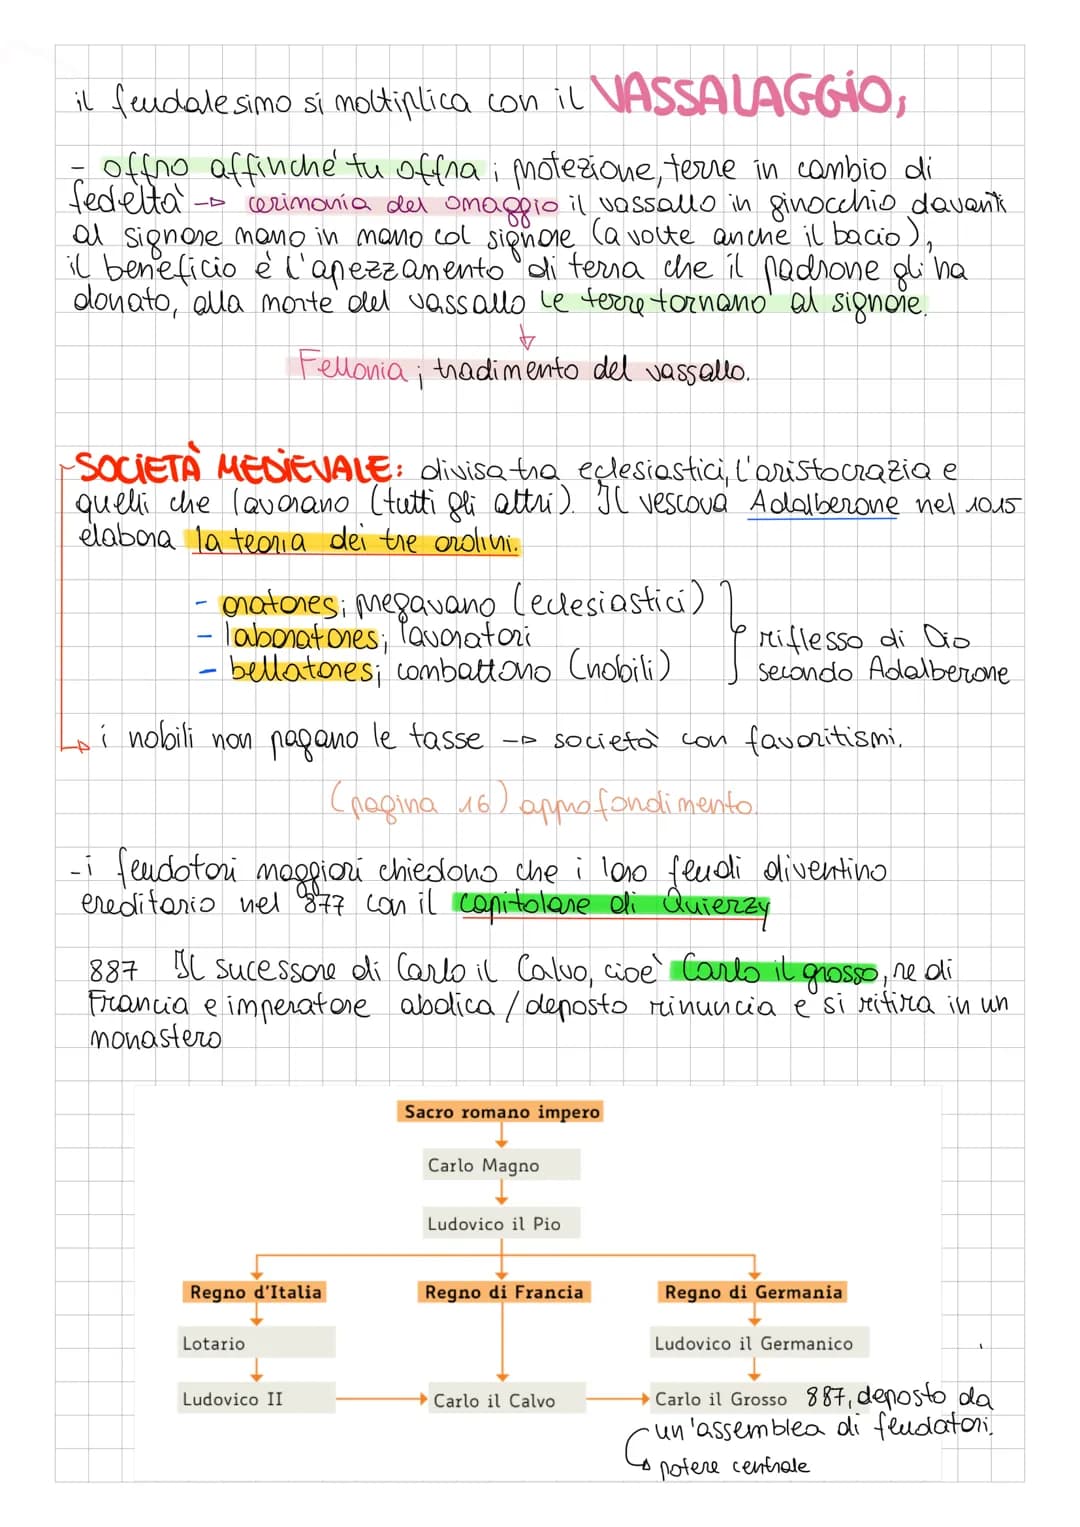 il feudalesimo si moltiplica con il VASSALAGGIO;
- offro affinchè tu offra; protezione, terre in cambio di
fedeltà -> cerimonia del omaggio il vassallo in ginocchio davanti
al signore mano in mano col signore (a volte anche il bacio),
il beneficio è l'apezzamento di terra che il padrone gli ha
donato, alla morte del vassallo le terre tornano al signore.
Fellonia; tradimento del vassallo.
SOCIETÀ MEDIEVALE: divisa tra eclesiastici, l'aristocrazia e
quelli che lavorano (tutti gli altri). Il vescovo Adalberone nel 1015
elabora la teoria dei tre ordini.
- oratores; pregavano (eclesiastici)
- laboratores; lavoratori
- bellatores; combattono (nobili)
riflesso di Dio
secondo Adalberone
i nobili non pagano le tasse -> società con favoritismi.
(pagina 16) approfondimento.
- i feudatori maggiori chiedono che i loro feudi diventino
ereditario nel 877 con il capitolare di Quierzy
887 Il sucessore di Carlo il Calvo, cioè Carlo il grosso, re di
Francia e imperatore abdica / deposto rinuncia e si ritira in un
monastero
Sacro romano impero
Carlo Magno
Ludovico il Pio
Regno d'Italia Regno di Francia Regno di Germania
Lotario Ludovico il Germanico
Ludovico II Carlo il Calvo Carlo il Grosso 887, deposto da
un'assemblea di feudatori.
potere centrale